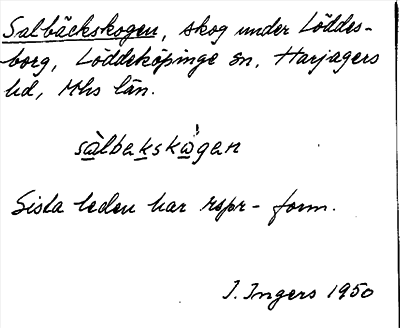 Salbäckskogen, skog under Löddes-
borg, Löddeköpinge sn, Harjagers
hd, Mhs län.
sàlbekskågen
Sista leden har rspr-form.
I. Ingers 1950